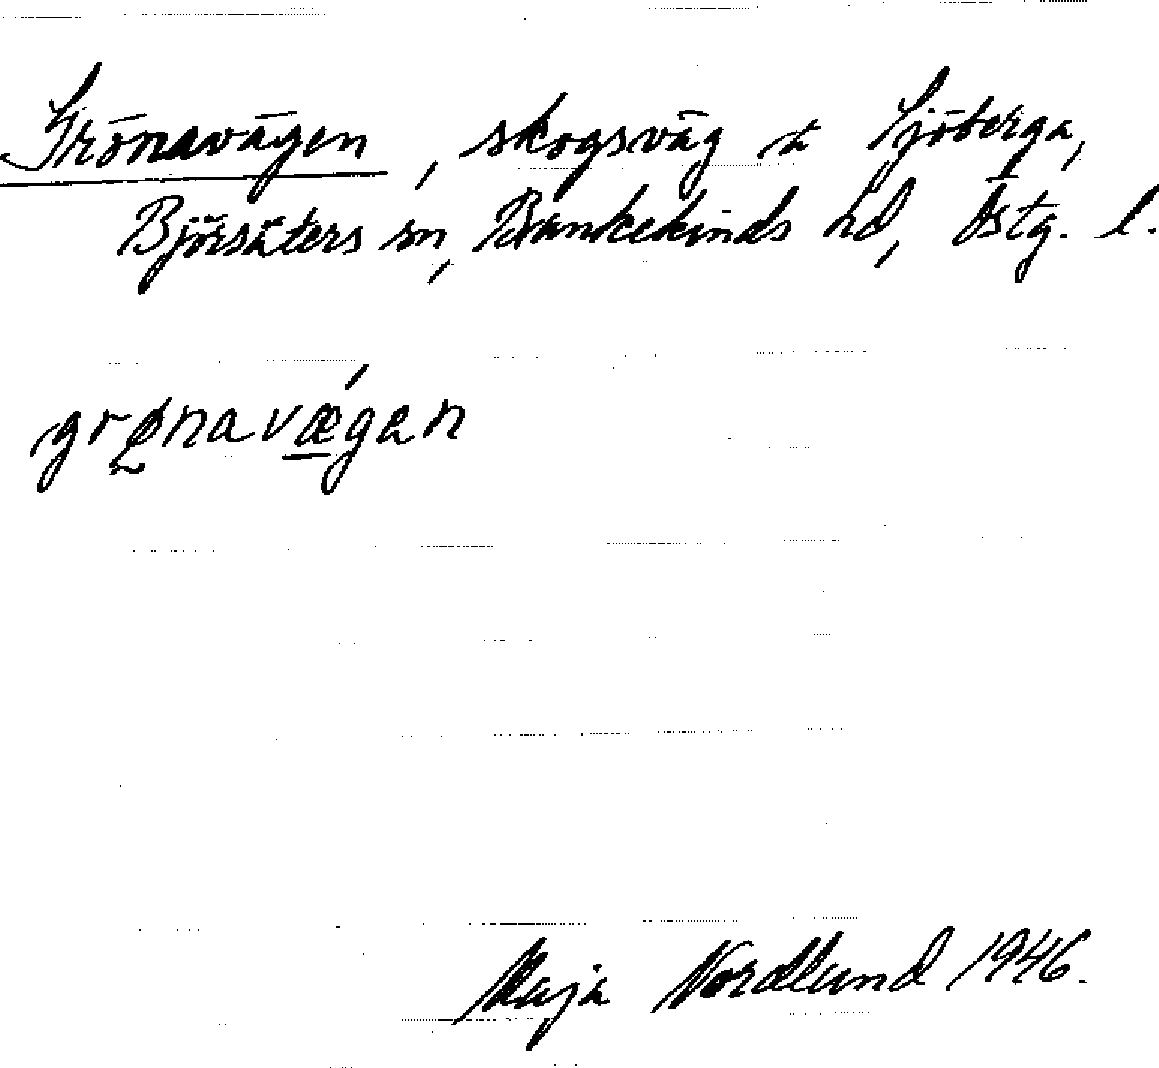 Grönavägen, skogsväg å Sjöberga,
Björsäters sn, Bankekinds hd, Östg. l.
grønavǽgan
Maja Nordlund 1946.